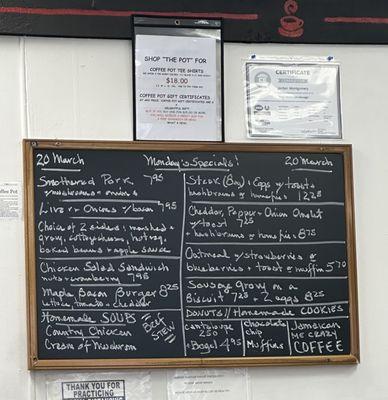 SHOP "THE POT" FOR
COFFEE POT TEE SHIRTS
$18.00
COFFEE POT GIFT CERTIFICATES
CERTIFICATE
20 March Monday's Specials! 20 March
Smothered Pork 7 95
w/mushrooms + onions
Liver + Onions w/ bacon 7 95
Choice of 2 sides: mashed +
gravy, cottage cheese, hot veg,
baked beans + apple sauce
Chicken Salad Sandwich
nuts + cranberry 7 95
Maple Bacon Burger 8 25
lettuce, tomato + cheddar
Homemade SOUPS
Country Chicken
Cream of Mushroom
Beef
STEW
Steak (8oz) + Eggs w/ toast +
hashbrowns or homefries 12 25
Cheddar, Pepper + Onion Omelet
w/ toast 7 25
hashbrowns or homefries 8 75
Oatmeal w/ strawberries or
blueberries + toast or muffin 5 70
Sausage Gravy on a
Biscuit 7 25 + 2 eggs 8 25
DONUTS / HOMEMADE COOKIES
cantaloupe
2 50
Bagel 4 95
chocolate
chip
Muffins
Jamaican
ME CRAZY
COFFEE
THANK YOU FOR
PRACTICING